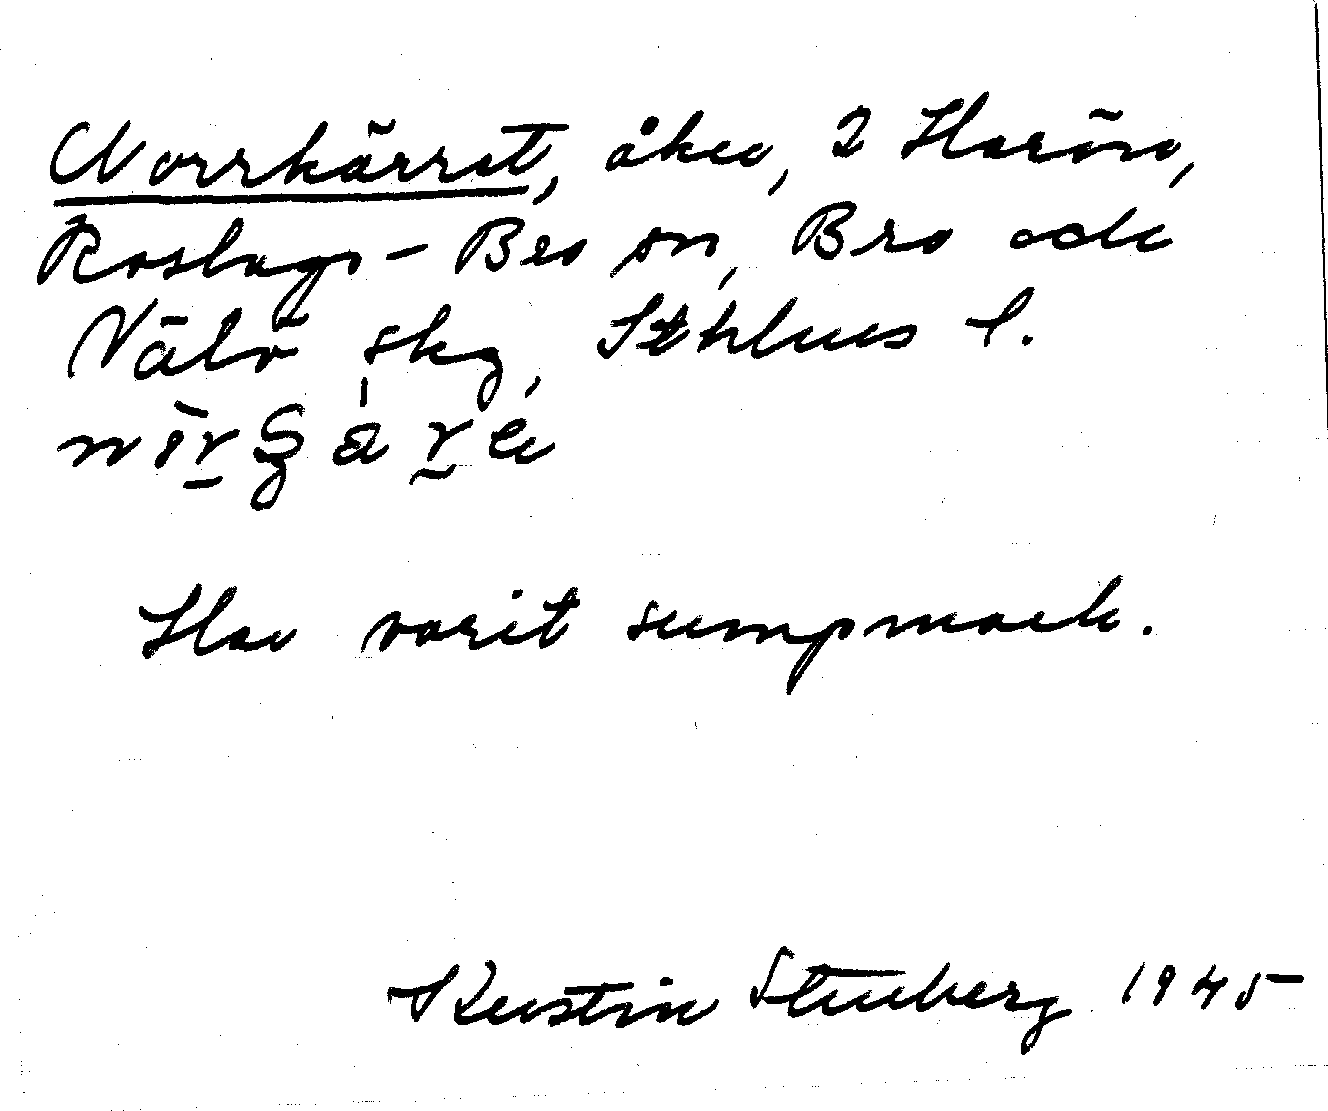 Norrkärret, åker, 2 Harön,
Roslags-Bro sn, Bro och
Vätö skg, Sthlms l.
Har varit sumpmark.
Kerstin Stenberg 1945